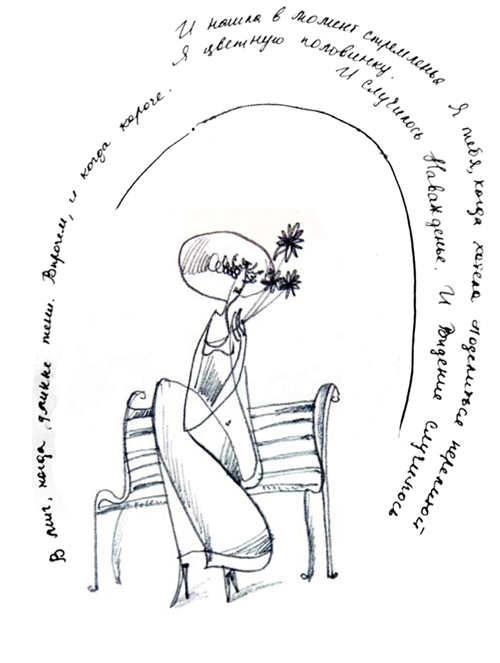 В миг, когда длинне тени. Впрочем, и когда короче.
И нашла в момент стремленья
Я тебя, когда хотела поделиться нереальной
Я цветную половинку.
И случилось Наважденье. И Видение случилось